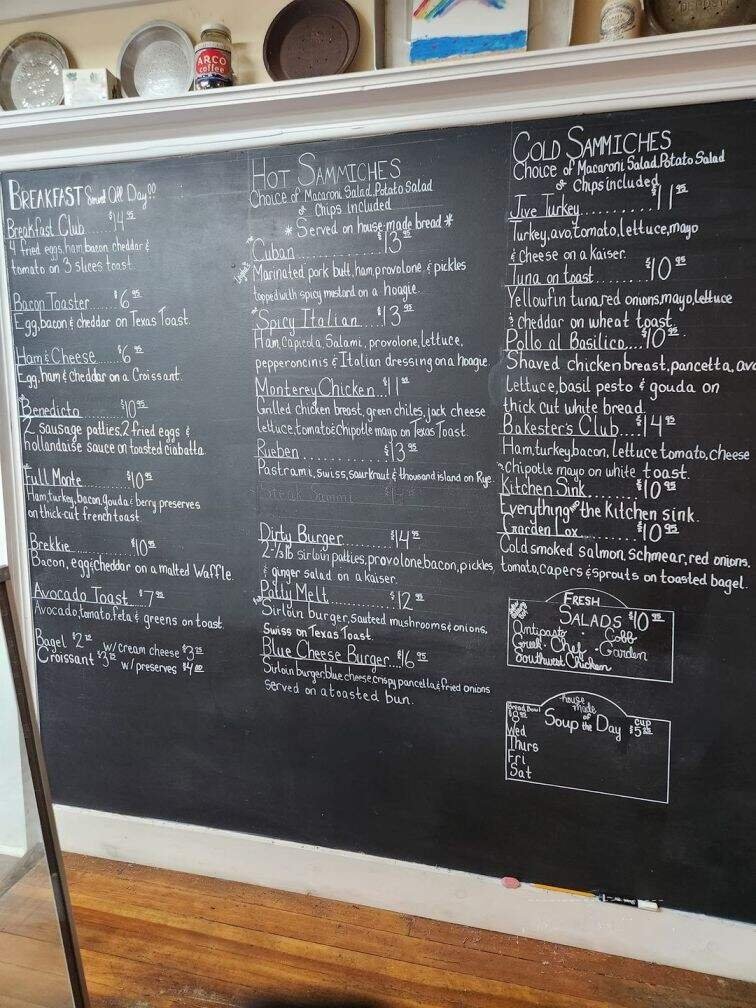 ARCO
coffee
BREAKFAST Served All Day!!
Breakfast Club $14.95
4 fried eggs, ham, bacon, cheddar &
tomato on 3 slices toast.
Bacon Toaster $6.95
Egg, bacon & cheddar on Texas Toast.
Ham & Cheese $6.95
Egg, ham & cheddar on a Croissant.
Benedicto $10.95
2 sausage patties, 2 fried eggs &
hollandaise sauce on toasted ciabatta.
Full Monte $10.95
Ham, turkey, bacon, gouda & berry preserves
on thick-cut french toast.
Brekkie $10.95
Bacon, egg & cheddar on a malted Waffle.
Avocado Toast $7.95
Avocado, tomato, feta & greens on toast.
Bagel w/cream cheese
Croissant w/preserves $4.00
HOT SAMMICHES
Choice of Macaroni Salad, Potato Salad
or Chips included
* Served on house-made bread *
Cuban $13.95
Marinated pork butt, ham, provolone & pickles
topped with spicy mustard on a hoagie.
Spicy Italian $13.95
Ham, Capicola, Salami, provolone, lettuce,
pepperoncinis & Italian dressing on a hoagie.
Monterey Chicken $11.95
Grilled chicken breast, green chiles, jack cheese
lettuce, tomato & chipotle mayo on Texas Toast.
Rueben $13.95
Pastrami, swiss, saurkraut & thousand island on Rye.
Dirty Burger $14.95
2-1/3 lb sirloin patties, provolone, bacon, pickles
& ginger salad on a kaiser.
Patty Melt $12.95
Sirloin burger, sauteed mushrooms & onions,
Swiss on Texas Toast.
Blue Cheese Burger $16.95
Sirloin burger, blue cheese, crispy pancetta & fried onions
served on a toasted bun.
COLD SAMMICHES
Choice of Macaroni Salad, Potato Salad
or Chips included
Jive Turkey $11.95
Turkey, avo, tomato, lettuce, mayo
& cheese on a kaiser.
Tuna on toast $10.95
Yellowfin tuna, red onions, mayo, lettuce
& cheddar on wheat toast.
Pollo al Basilico $10.95
Shaved chicken breast, pancetta, avo
lettuce, basil pesto & gouda on
thick cut white bread.
Bakester's Club $14.95
Ham, turkey, bacon, lettuce, tomato, cheese
& chipotle mayo on white toast.
Kitchen Sink $10.95
Everything but the kitchen sink.
Garden Lox $10.95
Cold smoked salmon, schmear, red onions,
tomato, capers & sprouts on toasted bagel.
FRESH
SALADS $10.95
Antipasto · Cobb
Greek · Chef · Garden
Southwest Chicken
house
made
Bread Bowl Soup of the Day cup
Wed
Thurs
Fri
Sat